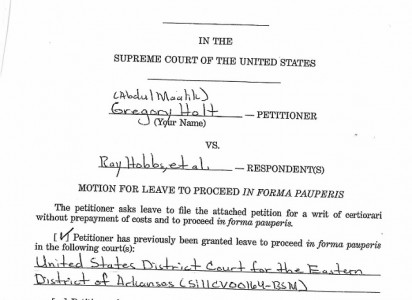 IN THE
SUPREME COURT OF THE UNITED STATES
(Abdul Maalik)
Gregory Holt — PETITIONER
(Your Name)
VS.
Ray Hobbs, et al. — RESPONDENT(S)
MOTION FOR LEAVE TO PROCEED IN FORMA PAUPERIS
The petitioner asks leave to file the attached petition for a writ of certiorari
without prepayment of costs and to proceed in forma pauperis.
[✓] Petitioner has previously been granted leave to proceed in forma pauperis
in the following court(s):
United States District Court for the Eastern
District of Arkansas (5:11CV00164-BSM)